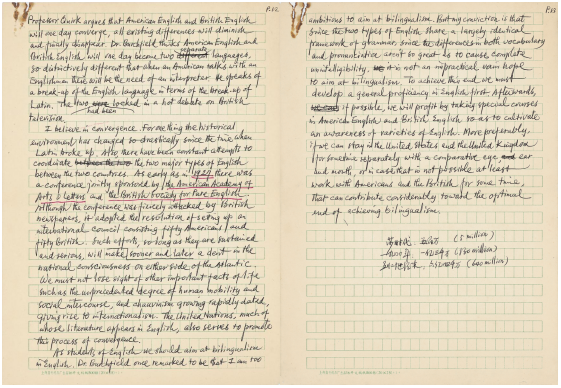 P.62
Professor Quirk argues that American English and British English
will one day converge, all existing differences will diminish
and finally disappear. Dr. Burchfield thinks American English and
British English will one day become two separate languages,
so distinctively different that when an American talks with an
Englishman there will be the need of an interpreter. He speaks of
a break-up of the English language in terms of the break-up of
Latin. The two had been locked in a hot debate on British
television.
I believe in convergence. For one thing the historical
environment has changed so drastically since the time when
Latin broke up. Also there have been constant attempts to
coordinate the two major types of English
between the two countries. As early as in 1927 there was
a conference jointly sponsored by the American Academy of
Arts & Letters and the British Society for Pure English.
Although the conference was fiercely attacked by British
newspapers, it adopted the resolution of setting up an
international council consisting fifty Americans and
fifty British. Such efforts, so long as they are sustained
and serious, will make sooner and later a dent in the
national consciousness on either side of the Atlantic.
We must not lose sight of other important facts of life
such as the unprecedented degree of human mobility and
social intercourse, and chauvinism growing rapidly dated,
giving rise to internationalism. The United Nations, much of
whose literature appears in English, also serves to promote
this process of convergence.
As students of English we should aim at bilingualism
in English. Dr. Burchfield once remarked to me that I am too
P.63
ambitious to aim at bilingualism. But my conviction is that
since the two types of English share a largely identical
framework of grammar, since the differences in both vocabulary
and pronunciation aren't so great as to cause complete
unintelligibility, it is not an impractical, vain hope
to aim at bilingualism. To achieve this end we must
develop a general proficiency in English first. Afterwards,
if possible, we will profit by taking special courses
in American English and British English so as to cultivate
an awareness of varieties of English. More preferably,
if we can stay in the United States and the United Kingdom
for sometime separately with a comparative eye, ear
and mouth, or in case that is not possible at least
work with Americans and the British for some time,
that can contribute considerably toward the optimal
end of achieving bilingualism.
(5 million)
(million)
(million)